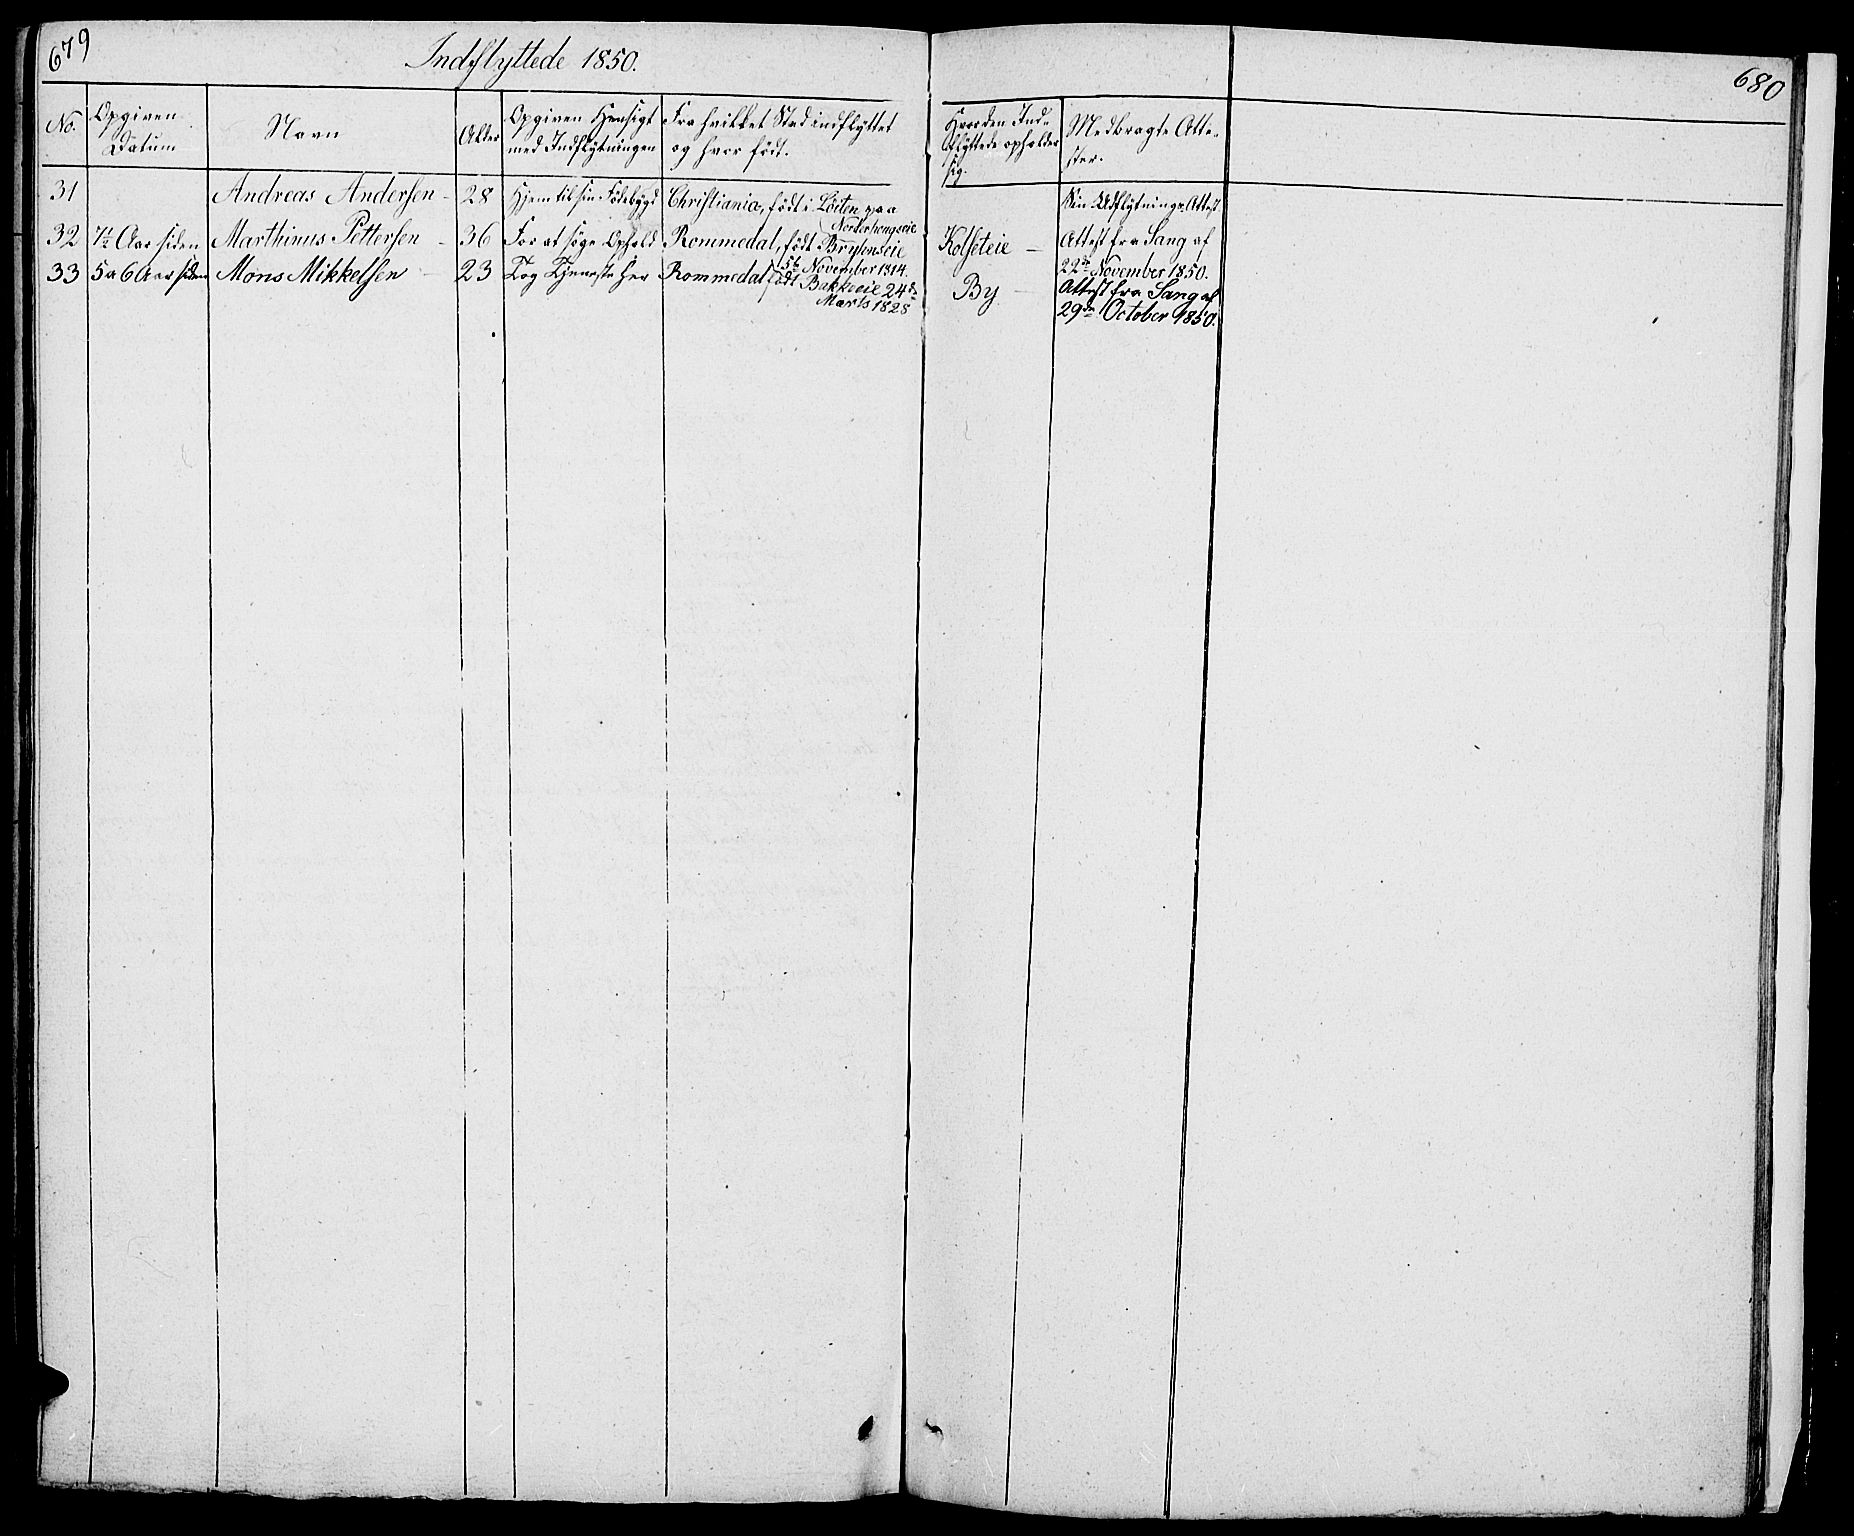 679
Indflyttede 1850.
680
No. | Opgiven Datum | Navn | Alder | Opgiven Hensigt med Indflytningen | Fra hvilket Sted indflyttet og hvor født. | Hvor den Indflyttede opholder sig. | Medbragte Attester.
31 | Andreas Andersen - | 28 | Hjem til sin Fødebygd | Christiania, født i Løiten paa Norderhougseie | Sin Udflytnings-Attest
32 | 7½ Aar siden | Marthinus Pettersen - | 36 | For at søge Ophold | Rommedal, født Bryhnseie 5te November 1814. | Kolseteie - | Attest fra Sang af 22de November 1850.
33 | 5 a 6 Aar siden | Mons Mikkelsen - | 23 | Tog Tjeneste her | Rommedal født Bakkeeie 24de Marts 1828 | By - | Attest fra Sang af 29de October 1850.